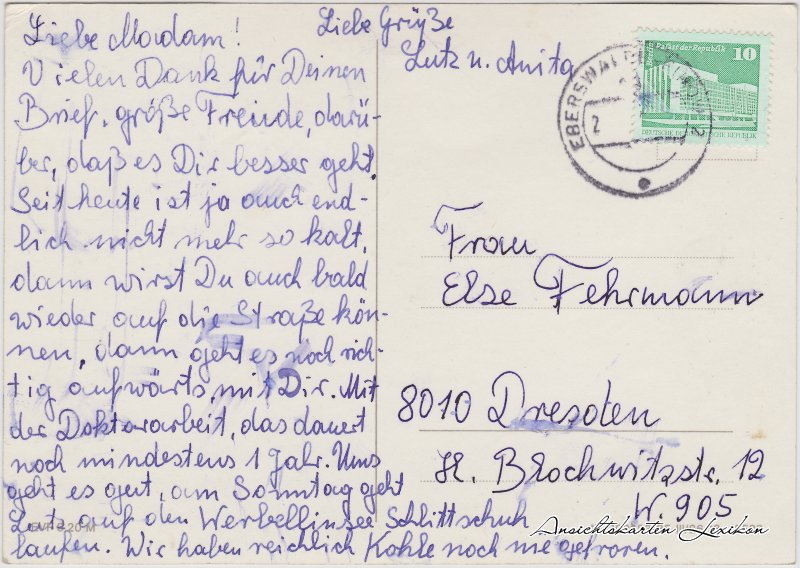 Liebe Madam!
Vielen Dank für Deinen
Brief, größe Freude, darü-
ber, daß es Dir besser geht.
Seit heute ist ja auch end-
lich nicht mehr so kalt,
dann wirst Du auch bald
wieder auf die Straße kön-
nen, dann geht es noch rich-
tig aufwärts mit Dir. Mit
der Doktorarbeit, das dauert
noch mindestens 1 Jahr. Uns
geht es gut, am Sonntag geht
Lutz auf den Werbellinsee Schlittschuh
laufen. Wir haben reichlich Kohle noch nie gefroren.
Liebe Grüße
Lutz u. Anita
EBERSWALDE
2
Berlin Palast der Republik 10
DEUTSCHE DEMOKRATISCHE REPUBLIK
Frau
Else Fehrmann
8010 Dresden
H. Blochwitzstr. 12
W. 905
Ansichtskarten Lexikon